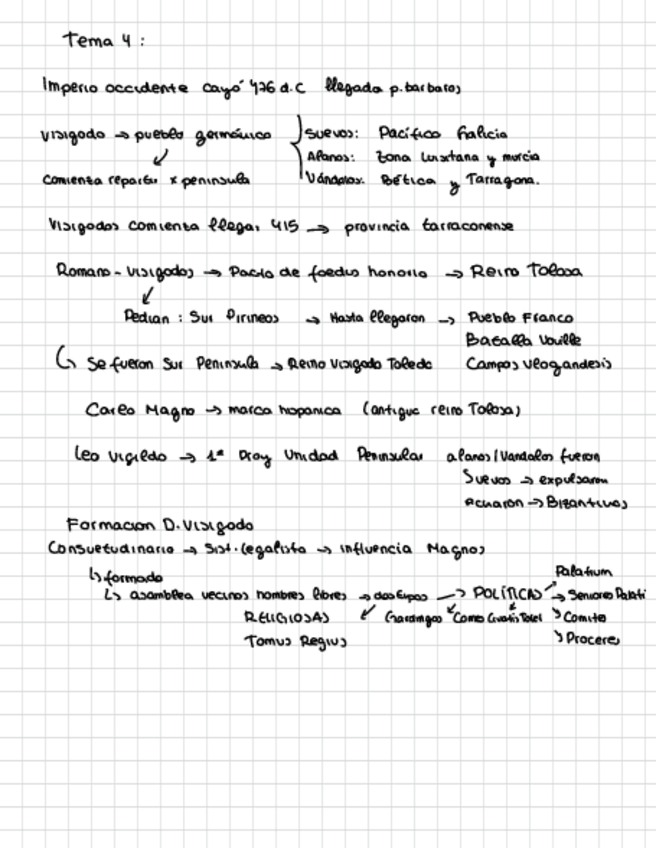 Tema 4:
Imperio occidente cayó 476 d.C llegada p.barbaros
visigodo → pueblo germánico
Suevos: Pacífico Galicia
Alanos: zona Lusitana y murcia
Vándalos: Bética y Tarragona.
comienza repartir x peninsula
Visigodos comienza llegar 415 → provincia tarraconense
Romano - visigodos → Pacto de foedus honorio → Reino Tolosa
Pedian: Sur Pirineos → Hasta llegaron → Pueblo Franco
Batalla Vouille
Campos Vlogandesis
↳ se fueron Sur Peninsula → Reino Visigodo Toledo
Carlo Magno → marca hispanica (antiguo reino Tolosa)
Leo Vigildo → 1ª Proy Unidad Peninsular alanos/Vandalos fueron
Suevos → expulsaron
→ Bizantinos
Formacion D. Visigodo
Consuetudinario → Sist. legalista → influencia Magnos
↳ formado
↳ asamblea vecinos hombres libres → dos tipos → POLÍTICAS → Seniores Palati
Palatium
RELIGIOSAS
Comites
Tomus Regius
Proceres